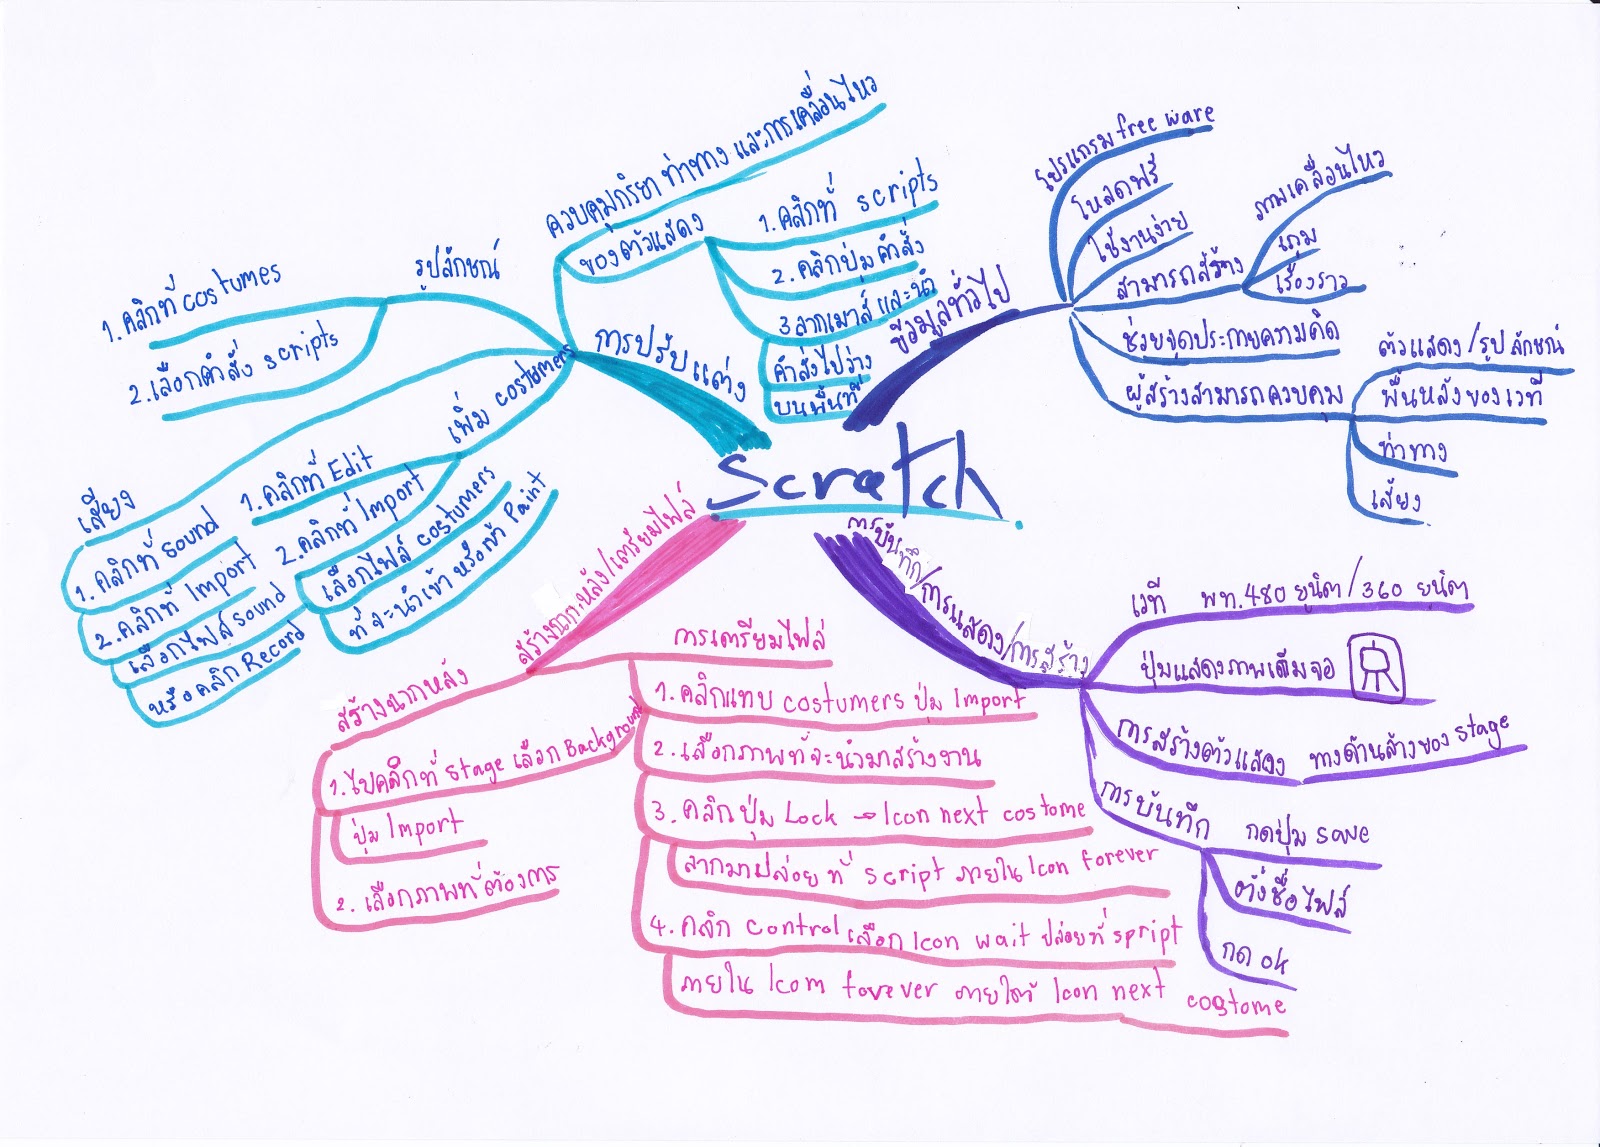 Scratch
ข้อมูลทั่วไป
โปรแกรม free ware
โหลดฟรี
ใช้งานง่าย
สามารถสร้าง
ภาพเคลื่อนไหว
เกม
เรื่องราว
ช่วยจุดประกายความคิด
ผู้สร้างสามารถควบคุม
ตัวแสดง/รูปลักษณ์
พื้นหลังของเวที
ท่าทาง
เสียง
การบันทึก/การแสดง/การสร้าง
เวที พท. 480 ยูนิต/360 ยูนิต
ปุ่มแสดงภาพเต็มจอ
การสร้างตัวแสดง ทางด้านล่างของ stage
การบันทึก กดปุ่ม save
ตั้งชื่อไฟล์
กด ok
สร้างฉากหลัง/เตรียมไฟล์
การเตรียมไฟล์
1. คลิกแทบ costumers ปุ่ม Import
2. เลือกภาพที่จะนำมาสร้างงาน
3. คลิกปุ่ม Lock → Icon next costome
ลากมาปล่อยที่ script ภายใน Icon forever
4. คลิก control เลือก Icon wait ปล่อยที่ spript
ภายใน Icom forever ภายใต้ Icon next costome
สร้างฉากหลัง
1. ไปคลิกที่ stage เลือก Background
ปุ่ม Import
2. เลือกภาพที่ต้องการ
การปรับแต่ง
ควบคุมกิริยา ท่าทาง และการเคลื่อนไหว
ของตัวแสดง
1. คลิกที่ scripts
2. คลิกปุ่มคำสั่ง
3 ลากเมาส์ และนำ
คำสั่งไปวาง
บนพื้นที่
รูปลักษณ์
1. คลิกที่ costumes
2. เลือกคำสั่ง scripts
เพิ่ม costumers
1. คลิกที่ Edit
2. คลิกที่ Import
เลือกไฟล์ costumers
ที่จะนำเข้า หรือเข้า Paint
เสียง
1. คลิกที่ sound
2. คลิกที่ Import
เลือกไฟล์ sound
หรือคลิก Record